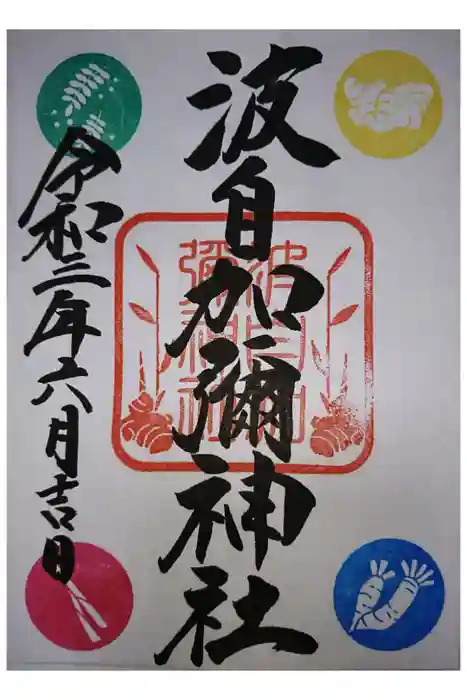 波自加彌神社
波自加
彌神社
令和三年六月吉日